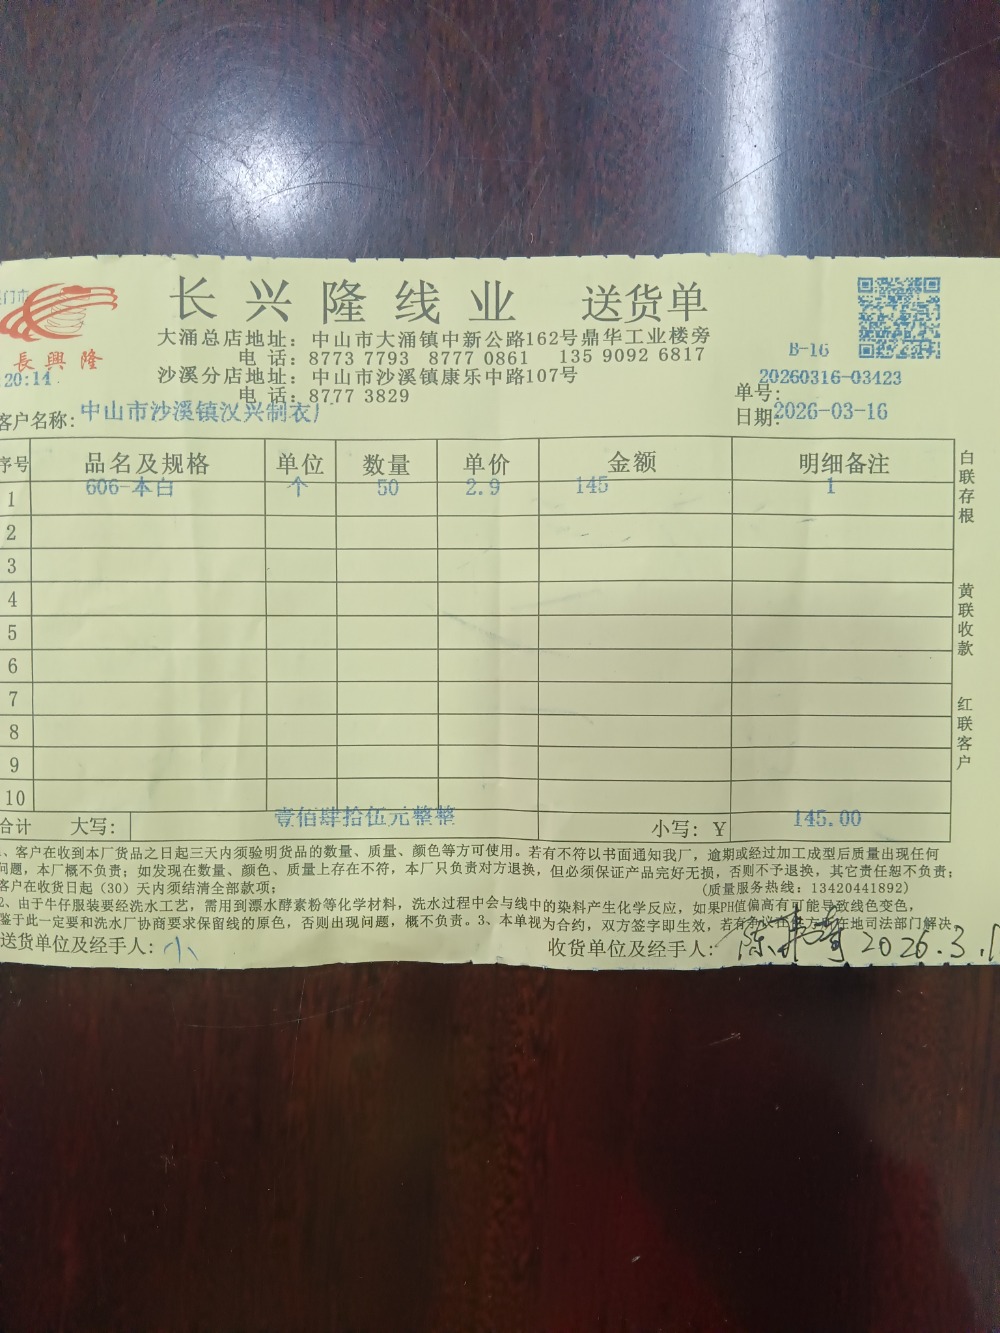 长兴隆线业 送货单
大涌总店地址：中山市大涌镇中新公路162号鼎华工业楼旁
电话：8773 7793 8777 0861 135 9092 6817
沙溪分店地址：中山市沙溪镇康乐中路107号
电话：8777 3829
長興隆
20:14
B-16
单号：20260316-03423
日期：2026-03-16
客户名称：中山市沙溪镇汉兴制衣厂
序号 品名及规格 单位 数量 单价 金额 明细备注
1 606-本白 个 50 2.9 145 1
2
3
4
5
6
7
8
9
10
合计 大写：壹佰肆拾伍元整整 小写：Y 145.00
白联存根
黄联收款
红联客户
1、客户在收到本厂货品之日起三天内须验明货品的数量、质量、颜色等方可使用。若有不符以书面通知我厂，逾期或经过加工成型后质量出现任何
问题，本厂概不负责；如发现在数量、颜色、质量上存在不符，本厂只负责对方退换，但必须保证产品完好无损，否则不予退换，其它责任恕不负责；
客户在收货日起（30）天内须结清全部款项； (质量服务热线：13420441892)
2、由于牛仔服装要经洗水工艺，需用到漂水酵素粉等化学材料，洗水过程中会与线中的染料产生化学反应，如果PH值偏高有可能导致线色变色，
鉴于此一定要和洗水厂协商要求保留线的原色，否则出现问题，概不负责。3、本单视为合约，双方签字即生效，若有争议在 方所在地司法部门解决。
送货单位及经手人：小
收货单位及经手人：陈 2026.3.1